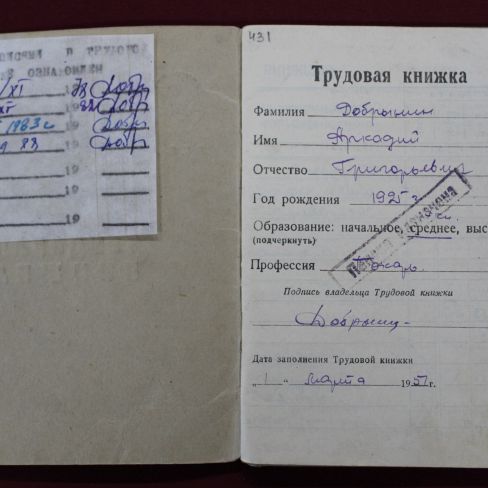 ОЗНАКОМЛЕН
78 Добр
Добр
1983 г. Добр
83 Добр
19
19
19
431
Трудовая книжка
Фамилия Добрынин
Имя Аркадий
Отчество Григорьевич
Год рождения 1925 г.
Образование: начальное, среднее, выс
(подчеркнуть)
Профессия Токарь
Подпись владельца Трудовой книжки
Добрынин
Дата заполнения Трудовой книжки
"1" марта 1951 г.